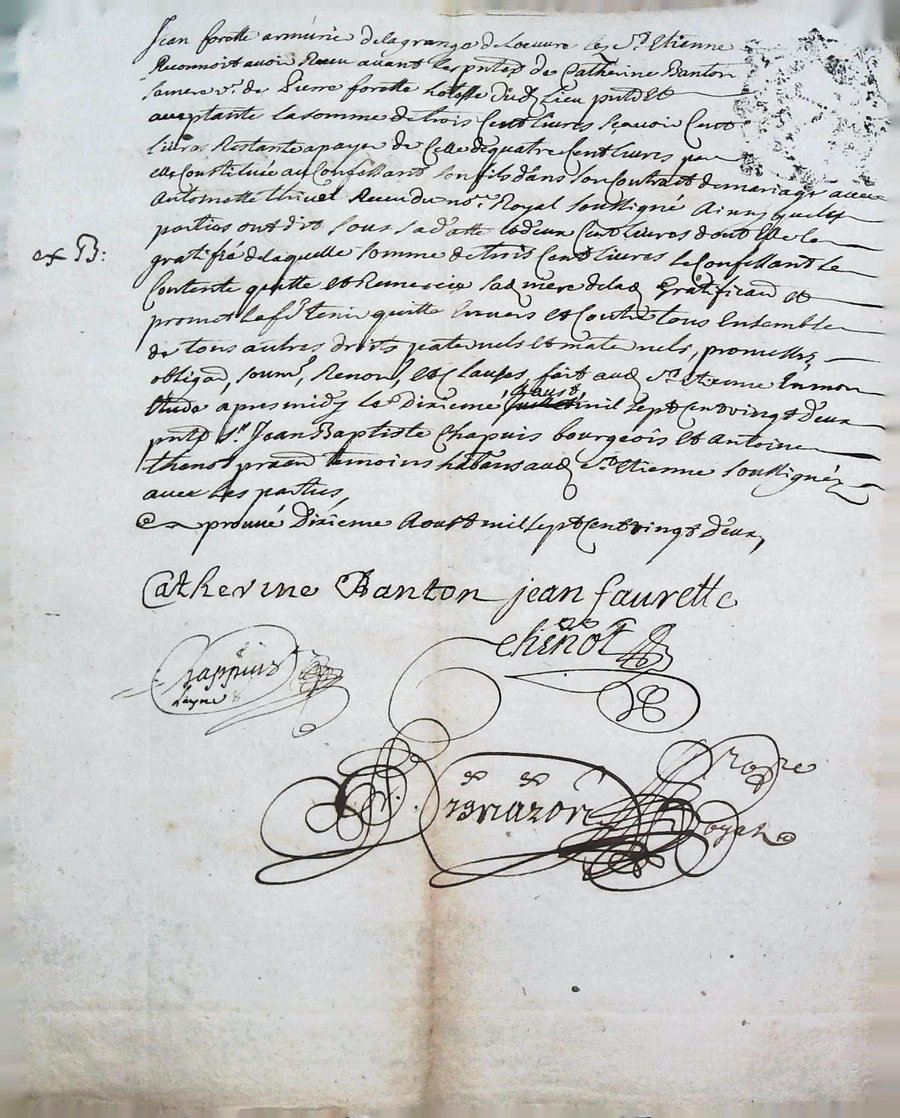 Jean forette armurie delagrange deloeuvre les St Etienne
Reconnoit avoir Receu avant les pntes de Catherine Banton
samere ve. de Pierre forette hoste dud Lieu pnte Et
aceptante la somme de trois Cent livres scavoir Cent
livres Restante apayer de Celle de quatre Cent livres par
elle Constituée au Confessant son fils dans son Contrat de mariage avec
thivel Receu du nore. Royal soussigné Ainsy que les
parties ont dit sous sa datte Et deux Cent livres dont Elle le
gratifie de laquelle somme de trois Cent livres le Confessant se
ex B:
Contente quitte et Remercie sad mere delad gratificaon et
promet la fe. tenir quitte Envers et Contre tous Ensemble
de tous autres droits paternels et maternels, promettes,
obligaon, soumn, Renon, et Clauses, fait aud St Etienne En mon
Etude apres midy Le dixieme aoust mil sept Cent vingt deux
pnts sr. Jean Baptiste Chapuis bourgeois Et Antoine
thenot praen temoins habtans aud St Etienne soussignés
avec Les parties,
prouvé Dixieme Aoust mil sept Cent vingt deux,
Catherine Banton jean faurette
Chappuis thenot
Layne
nore
Royal